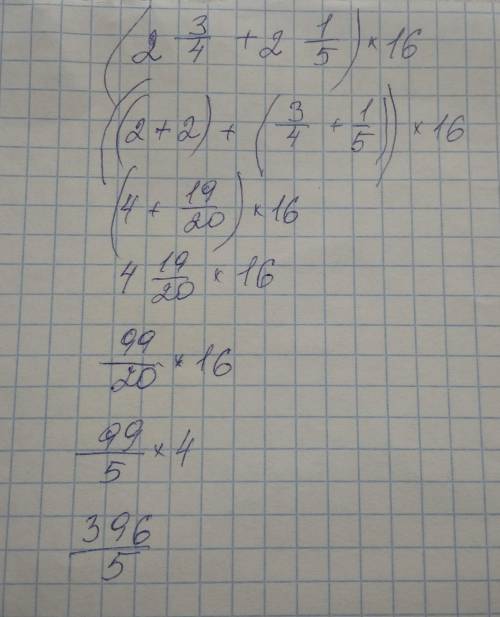 (2 3/4 + 2 1/5) × 16
((2 + 2) + (3/4 + 1/5)) × 16
(4 + 19/20) × 16
4 19/20 × 16
99/20 × 16
99/5 × 4
396/5